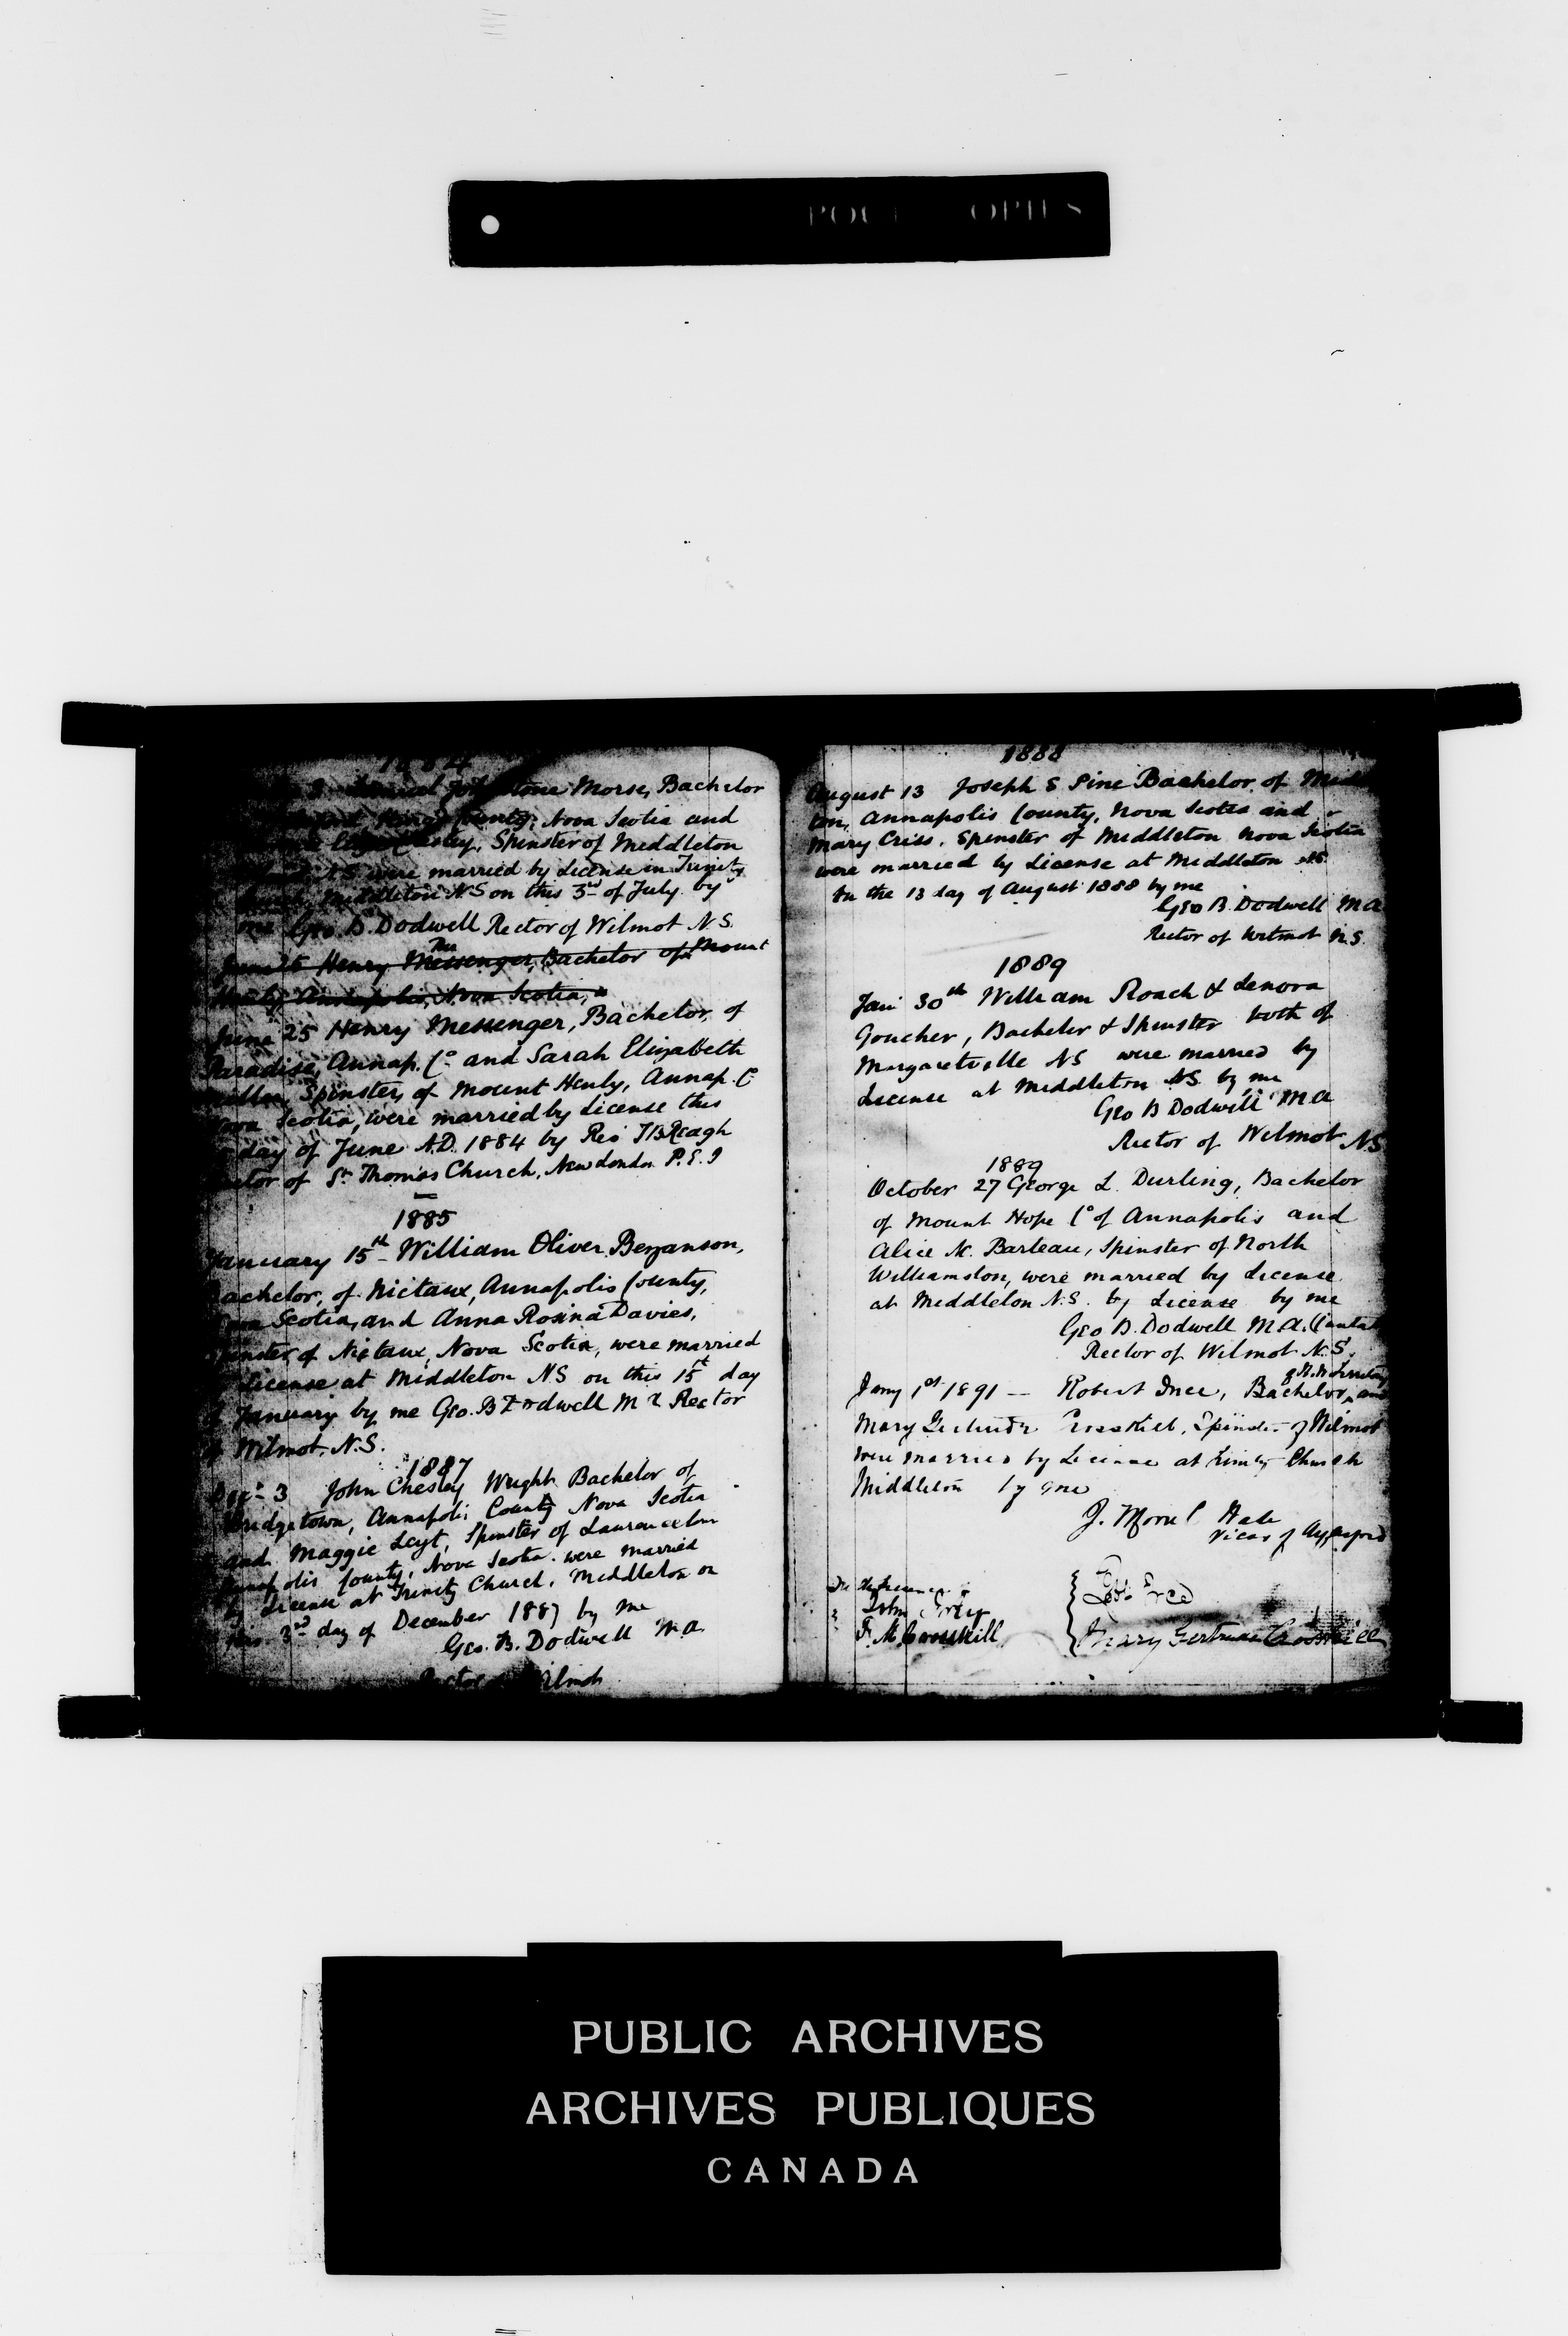 1884
Morse, Bachelor
County, Nova Scotia and
Spinster of Middleton
N.S. were married by License in Trinity
Middleton N S on this 3rd of July by
me Geo. B. Dodwell Rector of Wilmot N.S.
June 25 Henry Messenger, Bachelor of Mount
Annapolis, Nova Scotia,
June 25 Henry Messenger, Bachelor, of
Paradise, Annap. Co and Sarah Elizabeth
Spinster, of Mount Henly, Annap. Co
Scotia, were married by License this
day of June A.D. 1884 by Rev
of St Thomas Church, New London P.E.I
1885
January 15th William Oliver Bezanson,
Bachelor, of Nictaux, Annapolis County,
Scotia, and Anna Rosina Davies,
of Nictaux, Nova Scotia, were married
License at Middleton N S on this 15th day
of January by me Geo. B Dodwell M A Rector
of Wilmot. N.S.
1887
Decr 3 John Chesley Wright Bachelor of
Bridgetown, Annapolis County Nova Scotia
and Maggie Spinster of Laurencetown
Annapolis County, Nova Scotia. were married
by License at Trinity Church, Middleton on
this 3rd day of December 1887 by me
Geo. B. Dodwell M.A.
Rector Wilmot
1888
August 13 Joseph S Pine Bachelor of Middle
ton, Annapolis County, Nova Scotia and
Mary Criss, Spinster of Middleton Nova Scotia
were married by License at Middleton N.S.
on the 13 day of August 1888 by me
Geo B. Dodwell M A
Rector of Wilmot N.S.
1889
Jan 30th William Roach & Lenora
Goucher, Bachelor & Spinster both of
Margaretville NS were married by
License at Middleton N.S. by me
Geo B Dodwell M A
Rector of Wilmot N S
1889
October 27 George L. Durling, Bachelor
of Mount Hope Co of Annapolis and
Alice M. Barteau, Spinster of North
Williamston, were married by License
at Middleton N.S. by License by me
Geo B. Dodwell M.A.
Rector of Wilmot N.S.
of N.W. Territory
Jany 1st 1891 — Robert Inee, Bachelor and
Mary Gertrude Crosskill, Spinster of Wilmot
were married by License at Trinity Church
Middleton by me
J. Hale
Vicar of Aylesford
John
F. M. Crosskill
Mary Gertrude Crosskill
PUBLIC ARCHIVES
ARCHIVES PUBLIQUES
CANADA